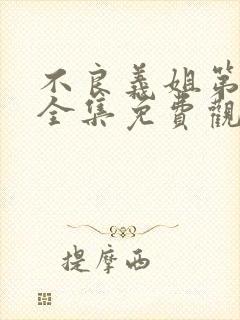 不良義姐第
全集免費觀
提摩西